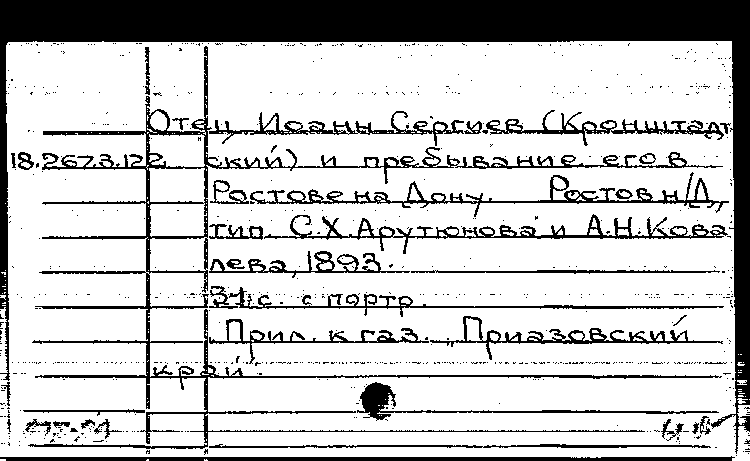 Отец Иоанн Сергиев (Кронштадт
18.267.3.122 ский) и пребывание его в
Ростове на Дону. Ростов н/Д,
тип. С.Х.Арутюнова и А.Н.Кова
лева, 1893.
31 с. с портр.
Прил. к газ. „Приазовский
край".